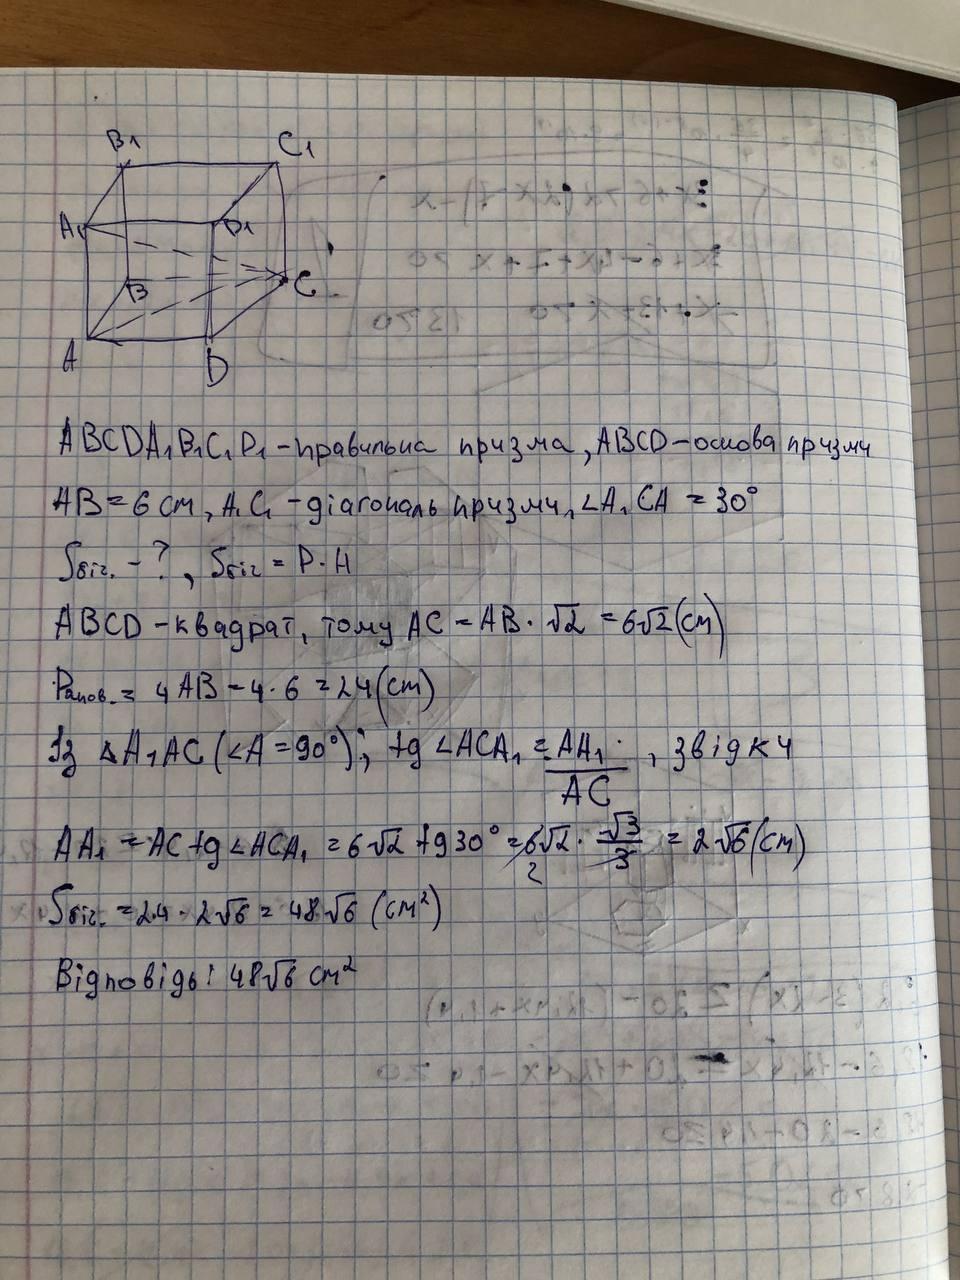 B1 C1
A1 D1
B C
A D
ABCDA1B1C1D1 - правильна призма, ABCD - основа призми
AB = 6 cm, A1C1 - діагональ призми, ∠A1CA = 30°
Sбіч. - ?, Sбіч = P · H
ABCD - квадрат, тому AC = AB · √2 = 6√2 (cm)
Panов. = 4AB = 4 · 6 = 24 (cm)
Із △A1AC (∠A = 90°); tg ∠ACA1 = AA1/AC, звідки
AA1 = AC tg ∠ACA1 = 6√2 tg 30° = 6√2 · √3/3 = 2√6 (cm)
2
Sбіч. = 24 · 2√6 = 48√6 (cm²)
Відповідь: 48√6 cm²